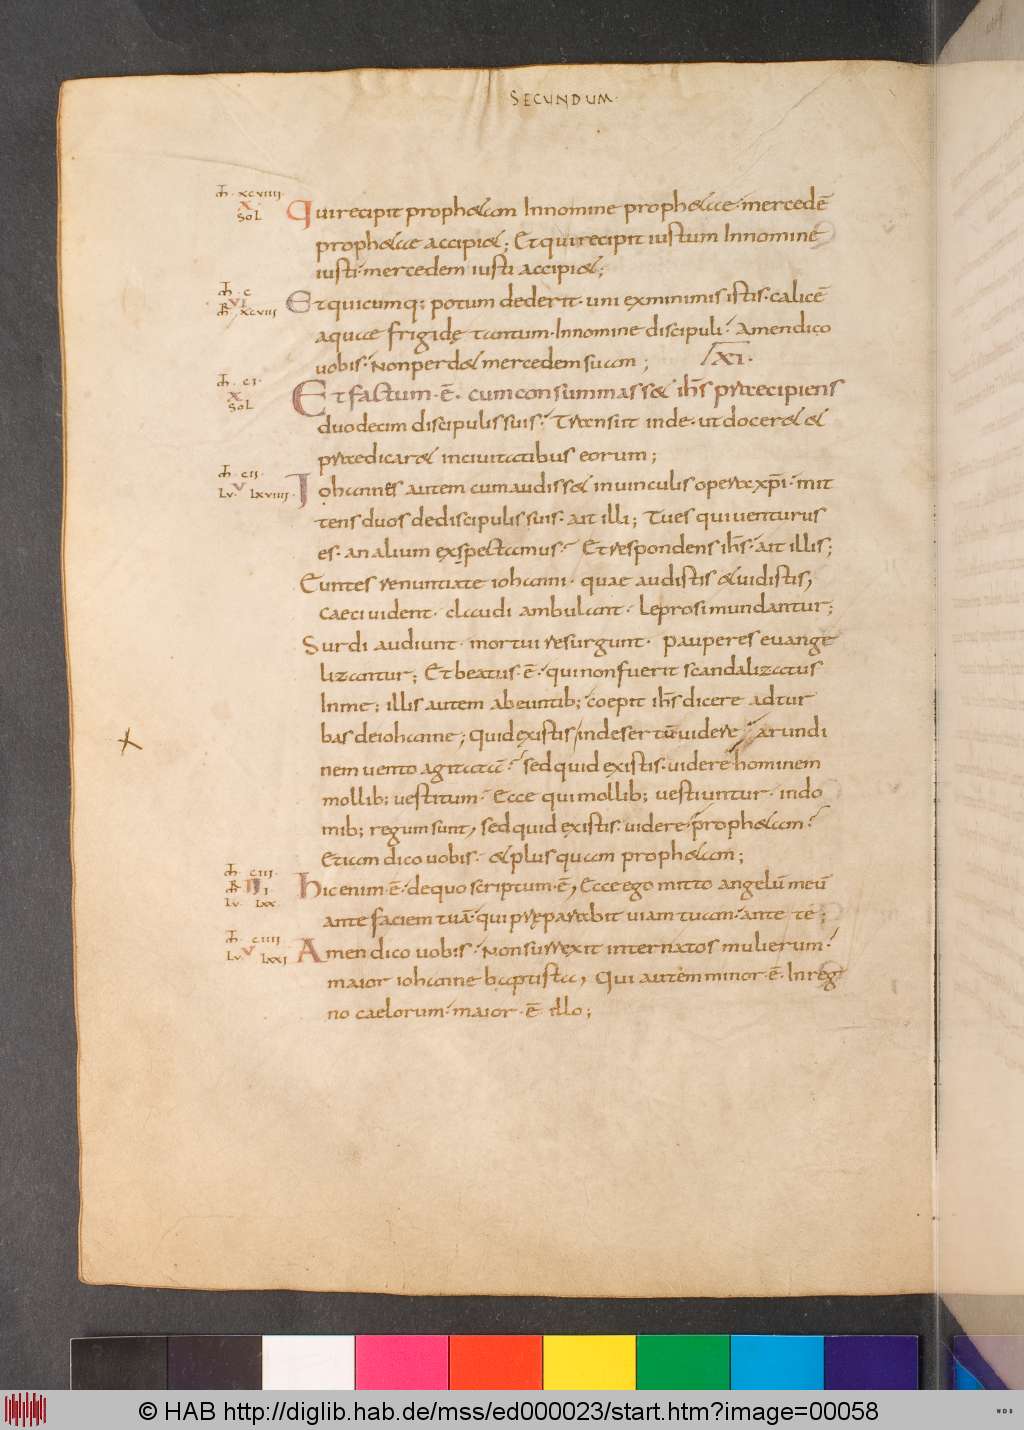 SECUNDUM·
m̄· xcviiii·
X
Sol
Qui recipit prophetam In nomine prophetae· mercedē
prophetae accipiet; Et qui recipit iustum In nomine
iusti· mercedem iusti accipiet;
m̄· c
R vi
m̄· xcviii
Et quicumq; potum dederit· uni ex minimis istis· calicē
aquae frigidę tantum· In nomine discipuli· Amen dico
uobis· Non perdet mercedem suam;
XI·
m̄· ci·
X
Sol
Et factum·ē· cum consummasset ihs praecipiens
duodecim discipulis suis· Transiit inde· ut doceret et
praedicaret in ciuitatibus eorum;
m̄· cii·
Lv· V lxviiii·
Iohannes autem cum audisset in uinculis opera xpi· mit
tens duos de discipulis suis· ait illi; Tu es qui uenturus
es· an alium exspectamus· Et respondens ihs· ait illis;
Euntes renuntiate iohanni· quae audistis et uidistis,
Caeci uident· claudi ambulant· Leprosi mundantur;
Surdi audiunt· mortui resurgunt· Pauperes euange
lizantur; Et beatus·ē· qui non fuerit scandalizatus
In me; illis autem abeuntib; coepit ihs dicere ad tur
bas de iohanne; Quid existis in desertū uidere· arundi
nem uento agitatā· sed quid existis· uidere hominem
mollib; uestitum· Ecce qui mollib; uestiuntur· in do
mib; regum sunt, sed quid existis· uidere· prophetam·
Etiam dico uobis· et plus quam prophetam;
m̄· ciii·
R III i
Lv· lxx
hic enim·ē· de quo scriptum·ē, Ecce ego mitto angelū meū
ante faciem tuā· qui pręparabit uiam tuam· ante te;
m̄· ciiii
Lv· V lxxi
Amen dico uobis· Non surrexit inter natos mulierum·
maior iohanne baptista, Qui autem minor·ē· In reg
no caelorum· maior·ē illo;
© HAB http://diglib.hab.de/mss/ed000023/start.htm?image=00058